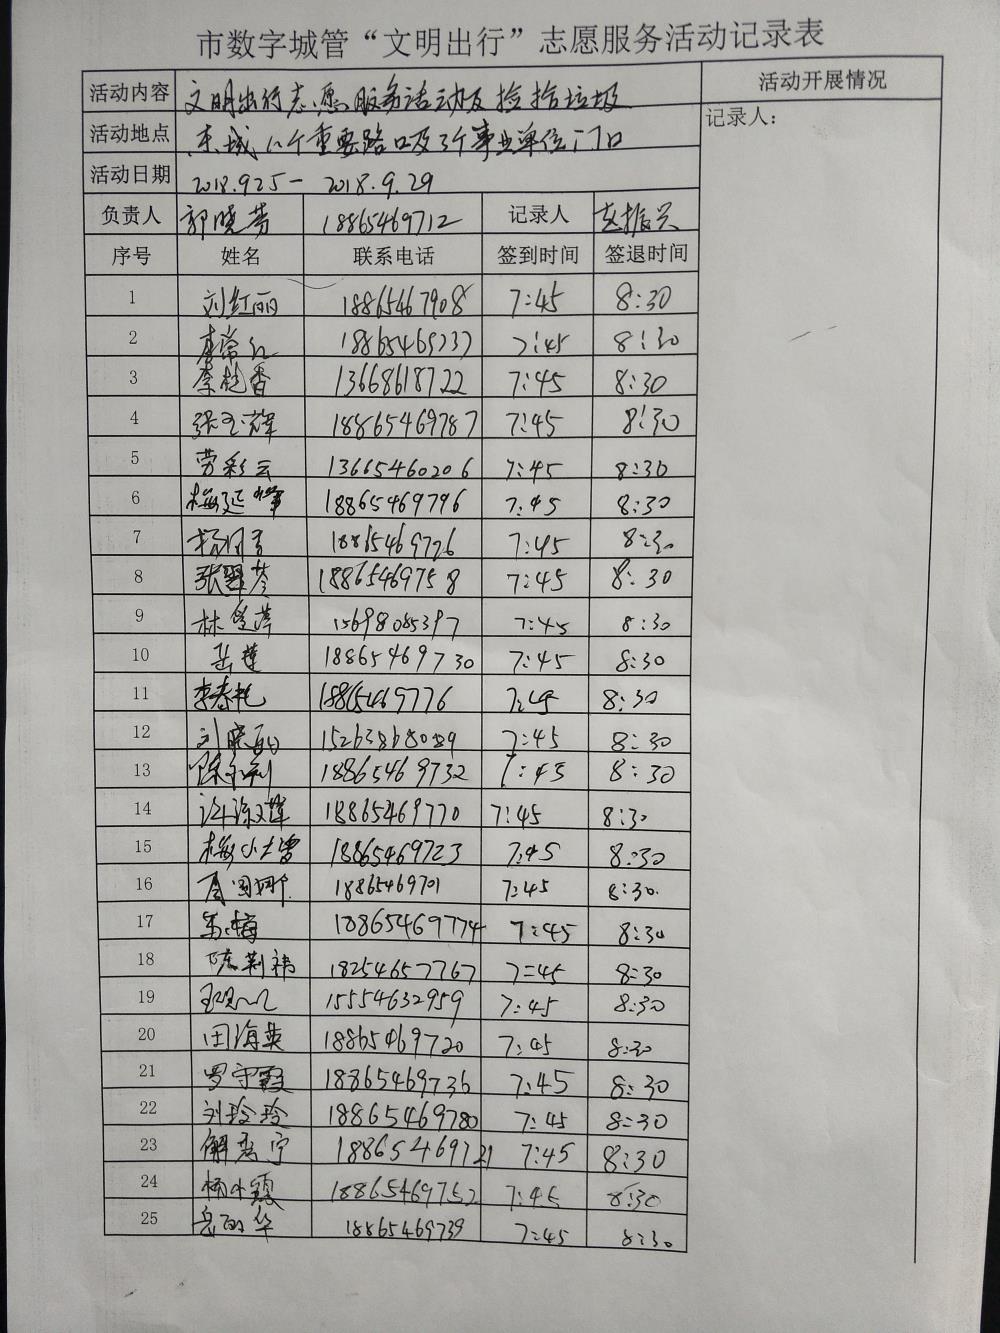 市数字城管“文明出行”志愿服务活动记录表
活动内容 文明出行志愿服务活动及捡拾垃圾 活动开展情况
活动地点 东城12个重要路口及3个事业单位门口 记录人：
活动日期 2018.9.25- 2018.9.29
负责人 郭晓芳 18865469712 记录人 赵振兴
序号 姓名 联系电话 签到时间 签退时间
1 刘红丽 18865467908 7:45 8:30
2 7:45 8:30
3 李桂香 13668618722 7:45 8:30
4 张玉辉 18865469787 7:45 8:30
5 劳彩云 13665460206 7:45 8:30
6 梅延峰 18865469796 7:45 8:30
7 18865469726 7:45 8:30
8 张翠芩 18865469758 7:45 8:30
9 林 15698085397 7:45 8:30
10 岳莲 18865469730 7:45 8:30
11 李春艳 18865469776 7:45 8:30
12 刘晓 7:45 8:30
13 18865469732 7:45 8:30
14 18865469770 7:45 8:30
15 梅小雪 18865469723 7:45 8:30
16 周国娜 18865469701 7:45 8:30.
17 18865469774 7:45 8:30
18 陈荆祎 18254657767 7:45 8:30
19 15554632959 7:45 8:30
20 田海英 18865469720 7:45 8:30
21 罗守霞 18865469736 7:45 8:30
22 刘玲玲 18865469780 7:45 8:30
23 解 宁 18865469721 7:45 8:30
24 杨小 18865469752 7:45 8:30
25 岳丽华 18865469739 7:45 8:30